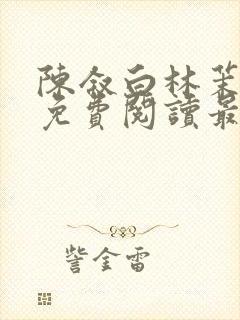 陳叙白林茉
免費閱讀最
訾金雷